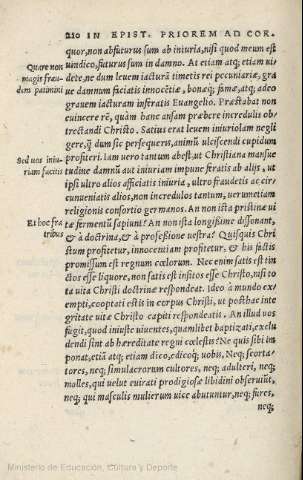 210 IN EPIST. PRIOREM AD COR.
quor, non abfuturus sum ab iniuria, nisi quod meum est
uindico, futurus sum in damno. At etiam atq; etiam ui/
Quare non
dete, ne dum leuem iacturã timetis rei pecuniariæ, gra
magis frau/
dem patimini
ue damnum faciatis innocẽtiæ, bonæq; famæ, atq; adeo
grauem iacturam inferatis Euangelio. Præstabat non
euincere rẽ, quàm hanc ansam præbere incredulis ob/
trectandi Christo. Satius erat leuem iniuriolam negli
gere, q̃ dum sic persequeris, animũ ulciscendi cupidum
Sed uos iniu/
profiteri. Iam uero tantum abest, ut Christiana mansue
riam facitis
tudine damnũ aut iniuriam impune feratis ab alijs, ut
ipsi ultro alios afficiatis iniuria, ultro fraudetis ac cir/
cunueniatis alios, non incredulos tantum, uerumetiam
religionis consortio germanos. An non ista pristinæ ui
Et hoc fra/
tæ fermentũ sapiunt? An non ista longissime dissonant,
tribus
& à doctrina, & à professione uestra? Quisquis Chri
stum profitetur, innocentiam profitetur, & his factis
promissum est regnum cœlorum. Nec enim satis est tin
ctos esse liquore, non satis est insitos esse Christo, nisi to
ta uita Christi doctrinæ respondeat. Ideo à mundo ex/
empti, cooptati estis in corpus Christi, ut posthac inte
gritate uitæ Christo capiti respondeatis. An illud uos
fugit, quod iniuste uiuentes, quamlibet baptizati, exclu
dendi sint ab hæreditate regni cœlestis? Ne quis sibi im
ponat, etiã atq; etiam dico, edicoq; uobis, Neq; scorta/
tores, neq; simulacrorum cultores, neq; adulteri, neq;
molles, qui uelut euirati prodigiosæ libidini obseruiũt,
neq; qui masculis mulierum uice abutuntur, neq; fures,
neq;
Ministerio de Educación, Cultura y Deporte